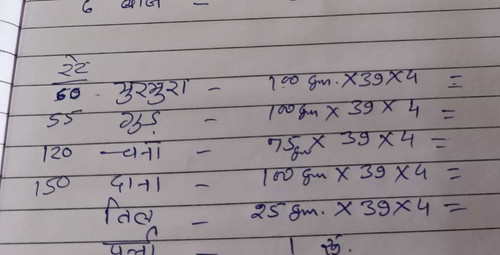 रेट
60 - मुरमुरा - 100 gm. × 39 × 4 =
55 गुड़ - 100 gm × 39 × 4 =
120 चना - 75 gm × 39 × 4 =
150 दाना - 100 gm × 39 × 4 =
तिल - 25 gm. × 39 × 4 =
पन्नी - 1 कि.